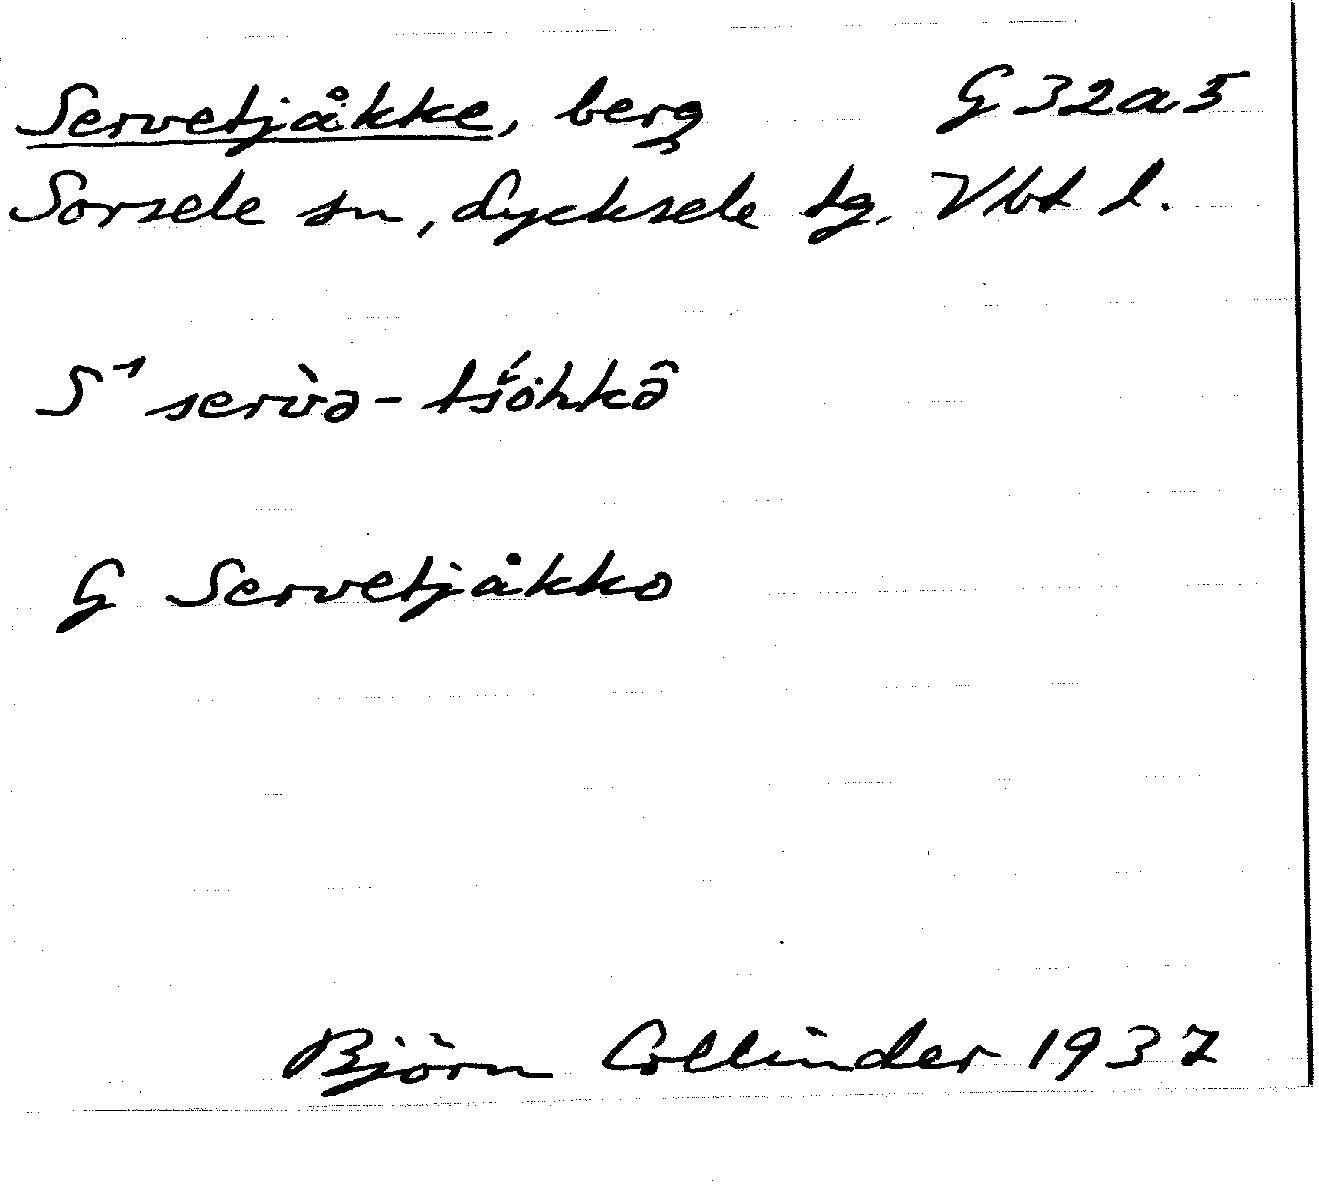 Servetjåkke, berg G32a5
Sorsele sn, Lycksele tg. Vbt l.
S⁴ serv̀ə-tśŏ́hkə̂
G Servetjåkko
Björn Collinder 1937